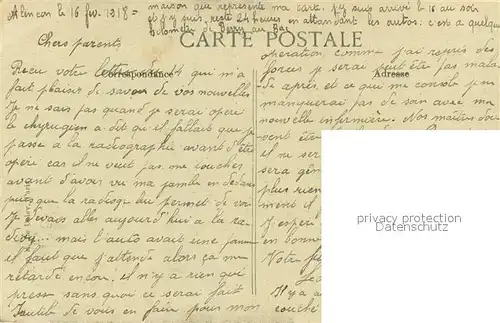 Alençon le 16 fev. 1918 -
maison que représente ma carte. j'y suis arrivé le 16 au soir
et j'y suis resté 24 heures en attendant les autos: c'est a quelques
kilomètres de Berry au Bac
CARTE POSTALE
Chers parents,
Correspondance
Adresse
Reçu votre lettre qui m'a
fait plaisir de savoir de vos nouvelles
Je ne sais pas quand je serai opéré
le chirurgien a dit qu'il fallait que je
passe a la radiographie avant d'être
opéré car il ne veut pas me toucher
avant d'avoir vu ma jambe en dedans
puisque la radiographie lui permet de voir
Je devais aller aujourd'hui a la ra-
mais l'auto avait une panne
il faut que j'attende alors ça me
retarde encore, il n'y a rien qui
presse sans quoi ce serai fait
Inutile de vous en faire pour moi
opération, comme j'ai repris des
forces je serai peut être pas mala-
de après, et ce qui me console je
manquerai pas de soin avec ma
nouvelle infirmière. Nos maîtres doi-
vent être
il ne
sera
plus rien
ment il
J'espère
en bonne
Votre
Il y a
couché
privacy protection